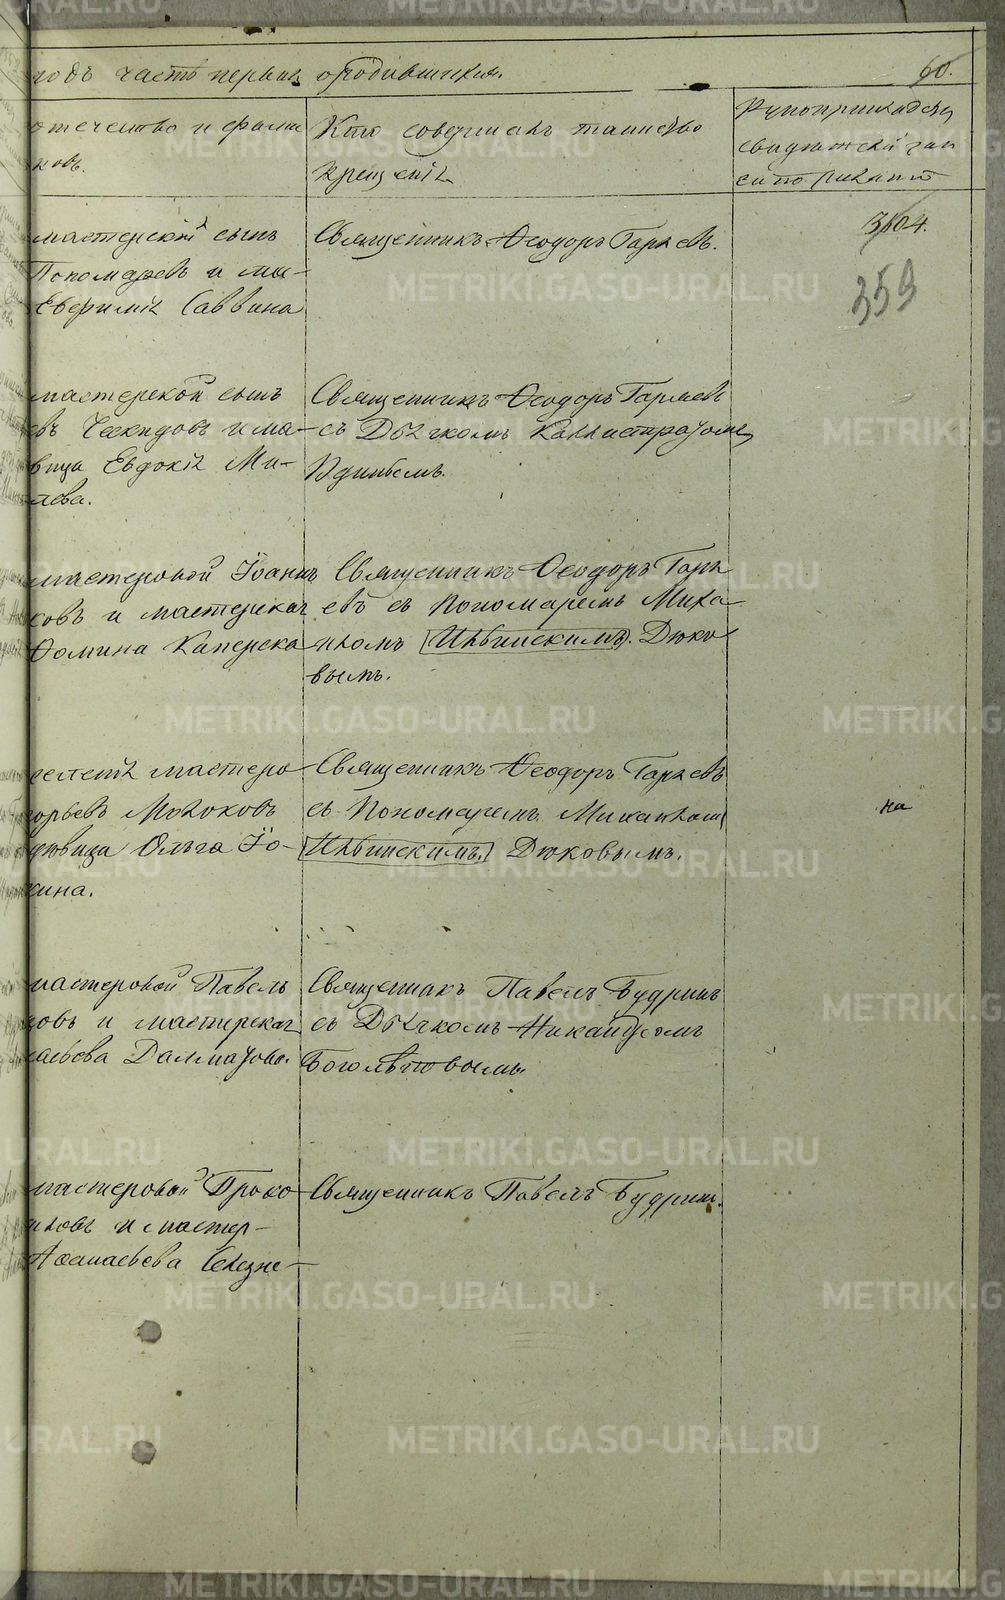 годъ часть первая о родившихся. 60.
отечество и фами
ковъ.
Кто совершалъ таинство
крещенія
Рукоприкладство
свидѣтелей зап
си по желанію
мастерской сынъ
Пономаревъ и ма-
Евфимія Саввина
Священникъ Ѳеодоръ Гаряевъ.
3604.
359
мастерской сынъ
евъ Чекидовъ и ма-
вица Евдокія Ми-
лева.
Священникъ Ѳеодоръ Гаряевъ
съ Дьячкомъ Каллистратомъ
Удинцемъ.
мастеровой Іоаннъ
ковъ и мастерская
Ѳомина Каперска
Священникъ Ѳеодоръ Гаря
евъ съ пономаремъ Миха
иломъ Ильинскимъ. Дюко
вымъ.
мастеро
горьевъ Моłоковъ
девица Ольга Іо-
кина.
Священникъ Ѳеодоръ Гаряевъ
съ Пономаремъ Михаиломъ
Ильинскимъ. Дюковымъ.
на
мастеровой Павелъ
ковъ и мастерская
саьева Далматова.
Священникъ Павелъ Будринъ
съ Дьячкомъ Никаноромъ
Боголѣповымъ.
мастеровой Проко
иловъ и мастер-
Аѳанасьева Селезне-
Священникъ Павелъ Будринъ.
METRIKI.GASO-URAL.RU